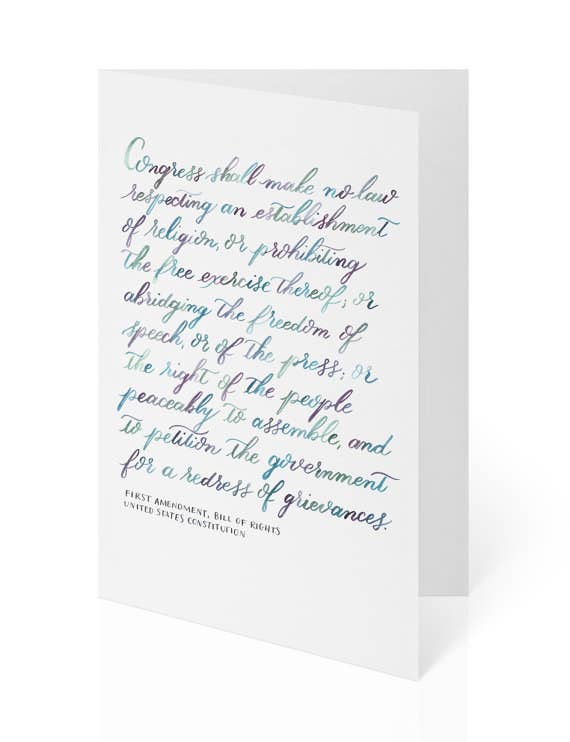 Congress shall make no law
respecting an establishment
of religion, or prohibiting
the free exercise thereof; or
abridging the freedom of
speech, or of the press; or
the right of the people
peaceably to assemble, and
to petition the government
for a redress of grievances.
FIRST AMENDMENT, BILL OF RIGHTS
UNITED STATES CONSTITUTION